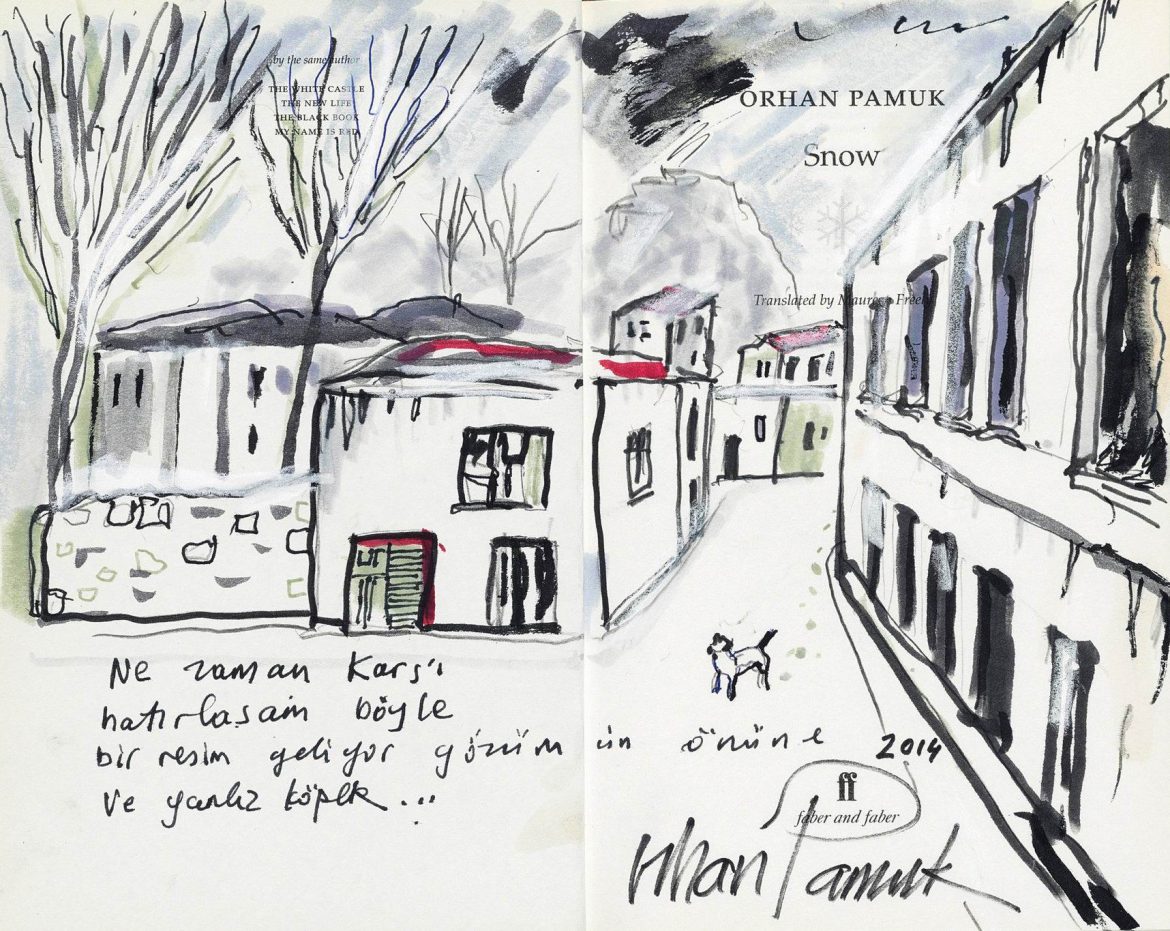 by the same author
THE WHITE CASTLE
THE NEW LIFE
THE BLACK BOOK
MY NAME IS RED
ORHAN PAMUK
Snow
Translated by Maureen Freely
Ne zaman Kars'ı
hatırlasam böyle
bir resim geliyor gözümün önüne
ve yanlız köpek...
2014
ff
faber and faber
Orhan Pamuk